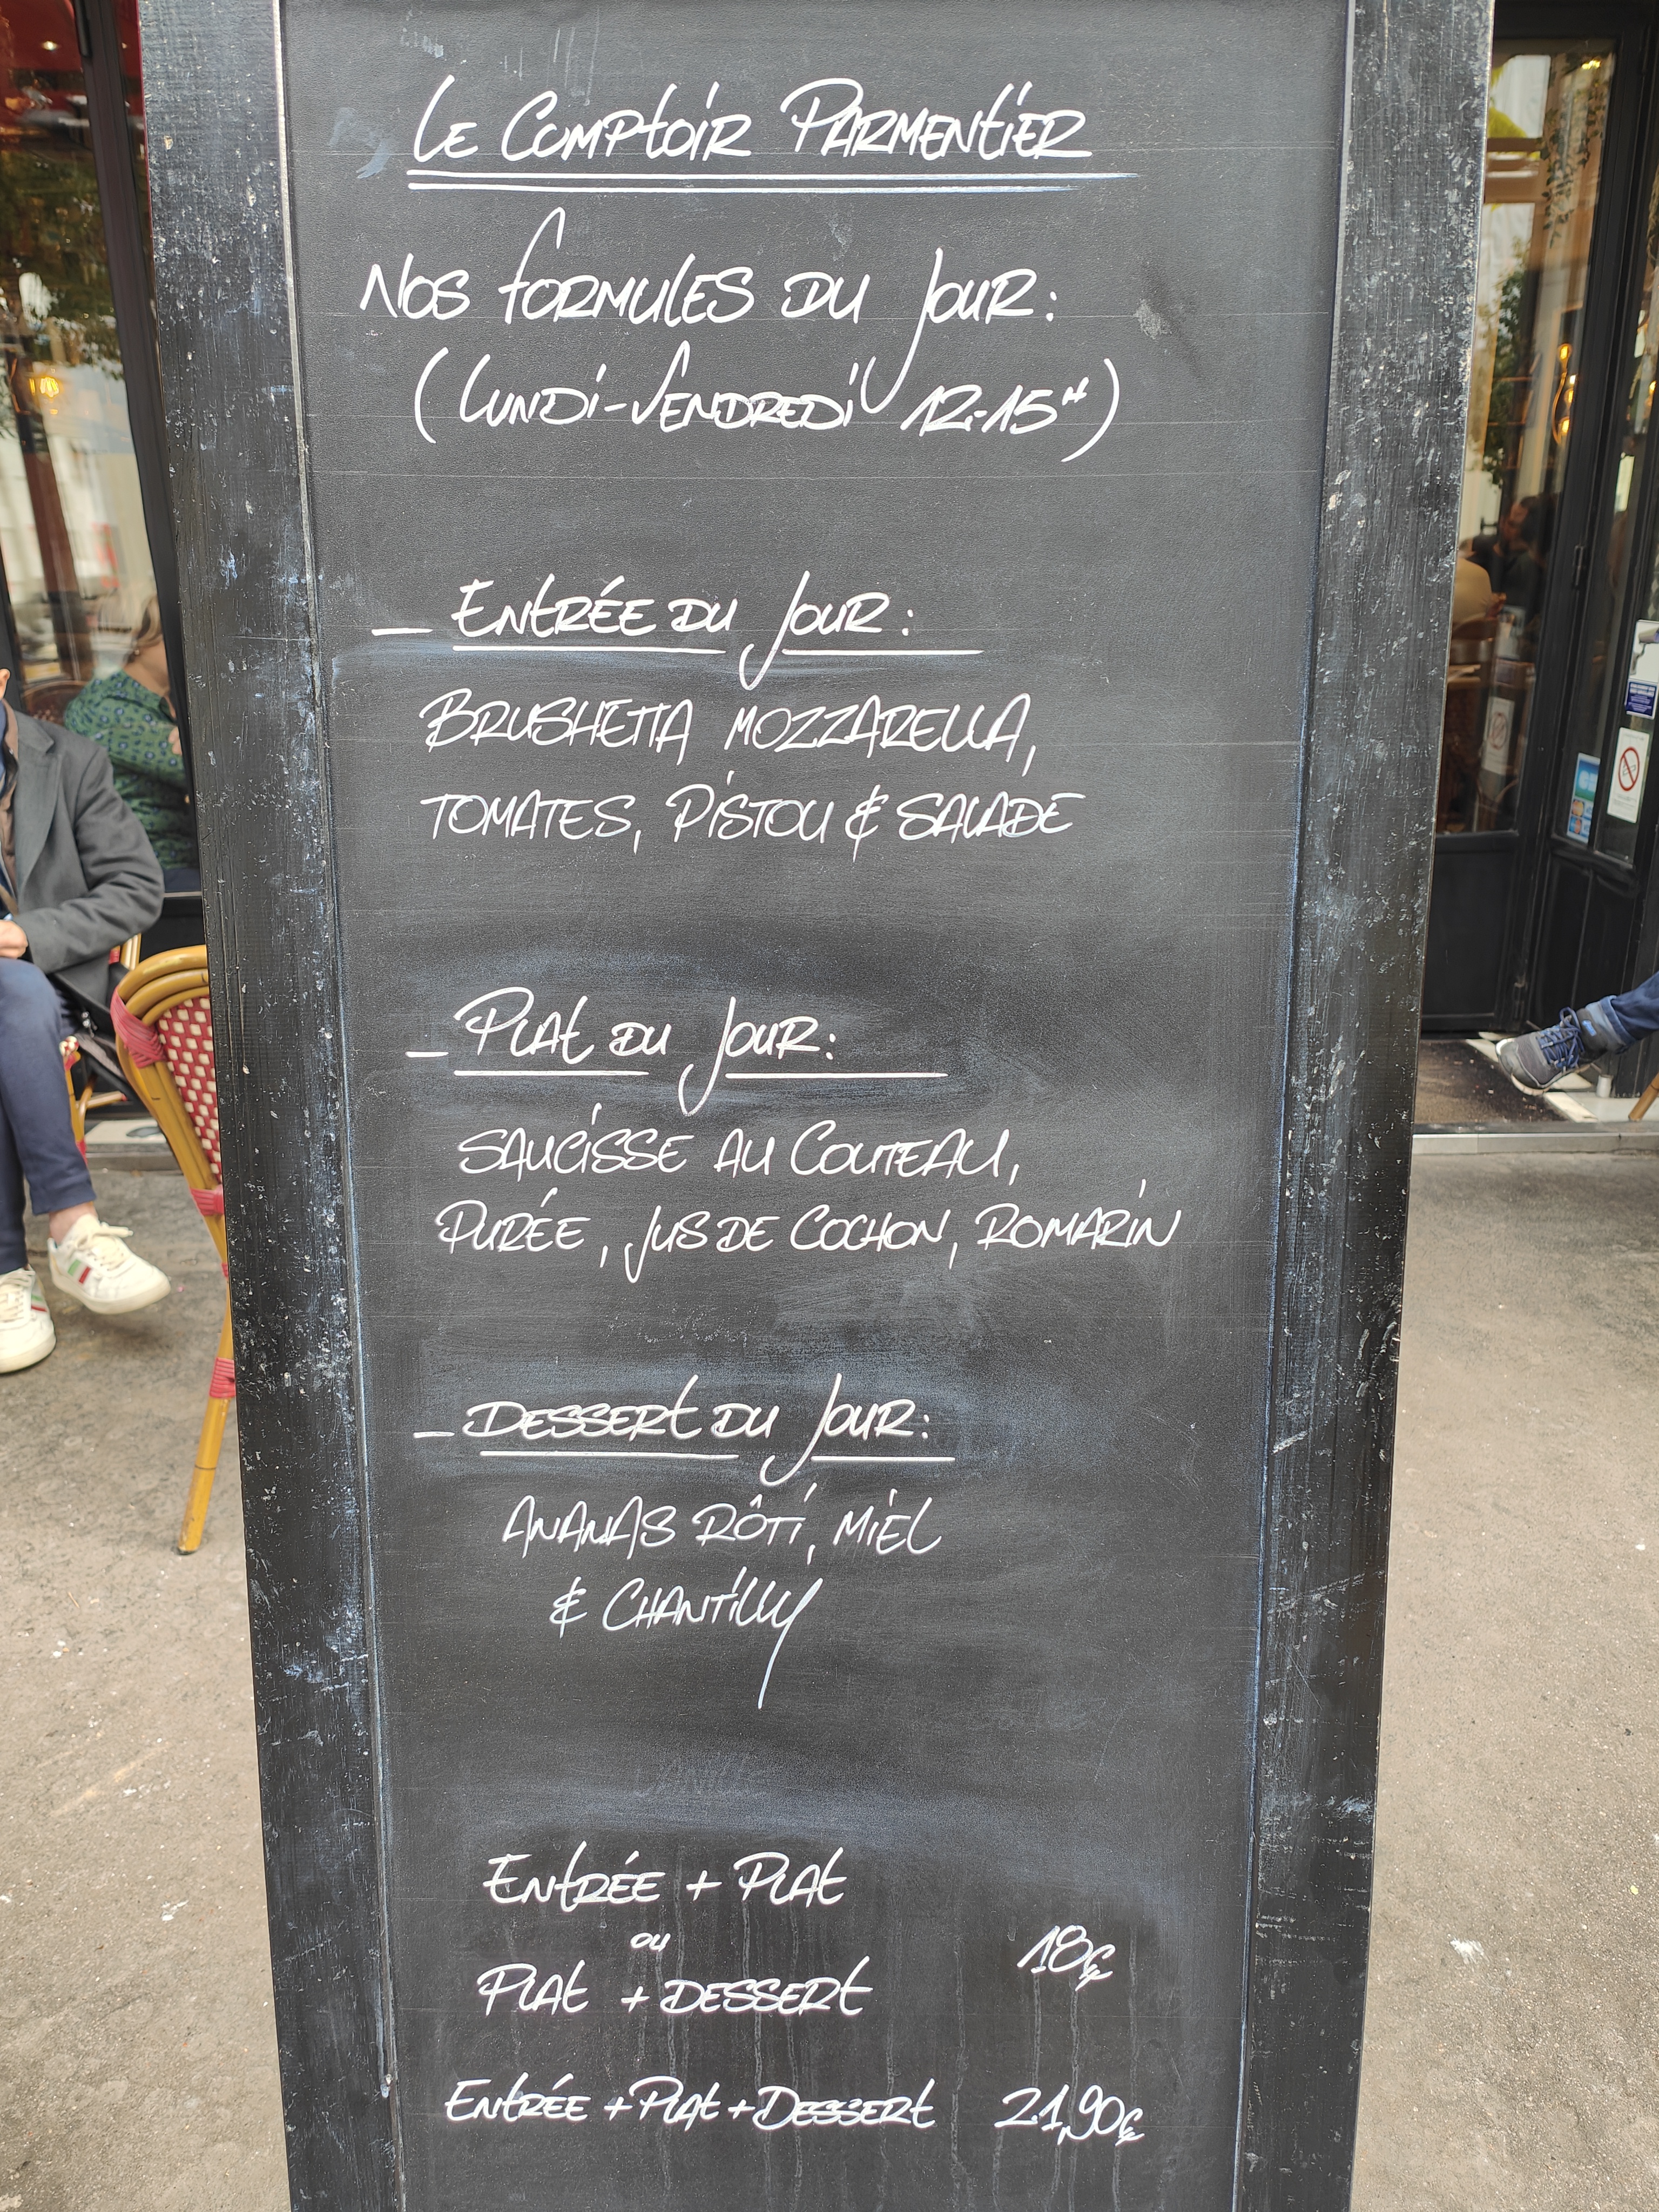 Le Comptoir Parmentier
Nos formules du jour :
(Lundi-Vendredi 12-15H)
_ Entrée du jour :
Brushetta mozzarella,
tomates, pistou & salade
_ Plat du jour :
Saucisse au couteau,
purée, jus de cochon, romarin
_ Dessert du jour :
Ananas rôti, miel
& chantilly
Entrée + Plat
ou
18€
Plat + Dessert
Entrée + Plat + Dessert 21,90€